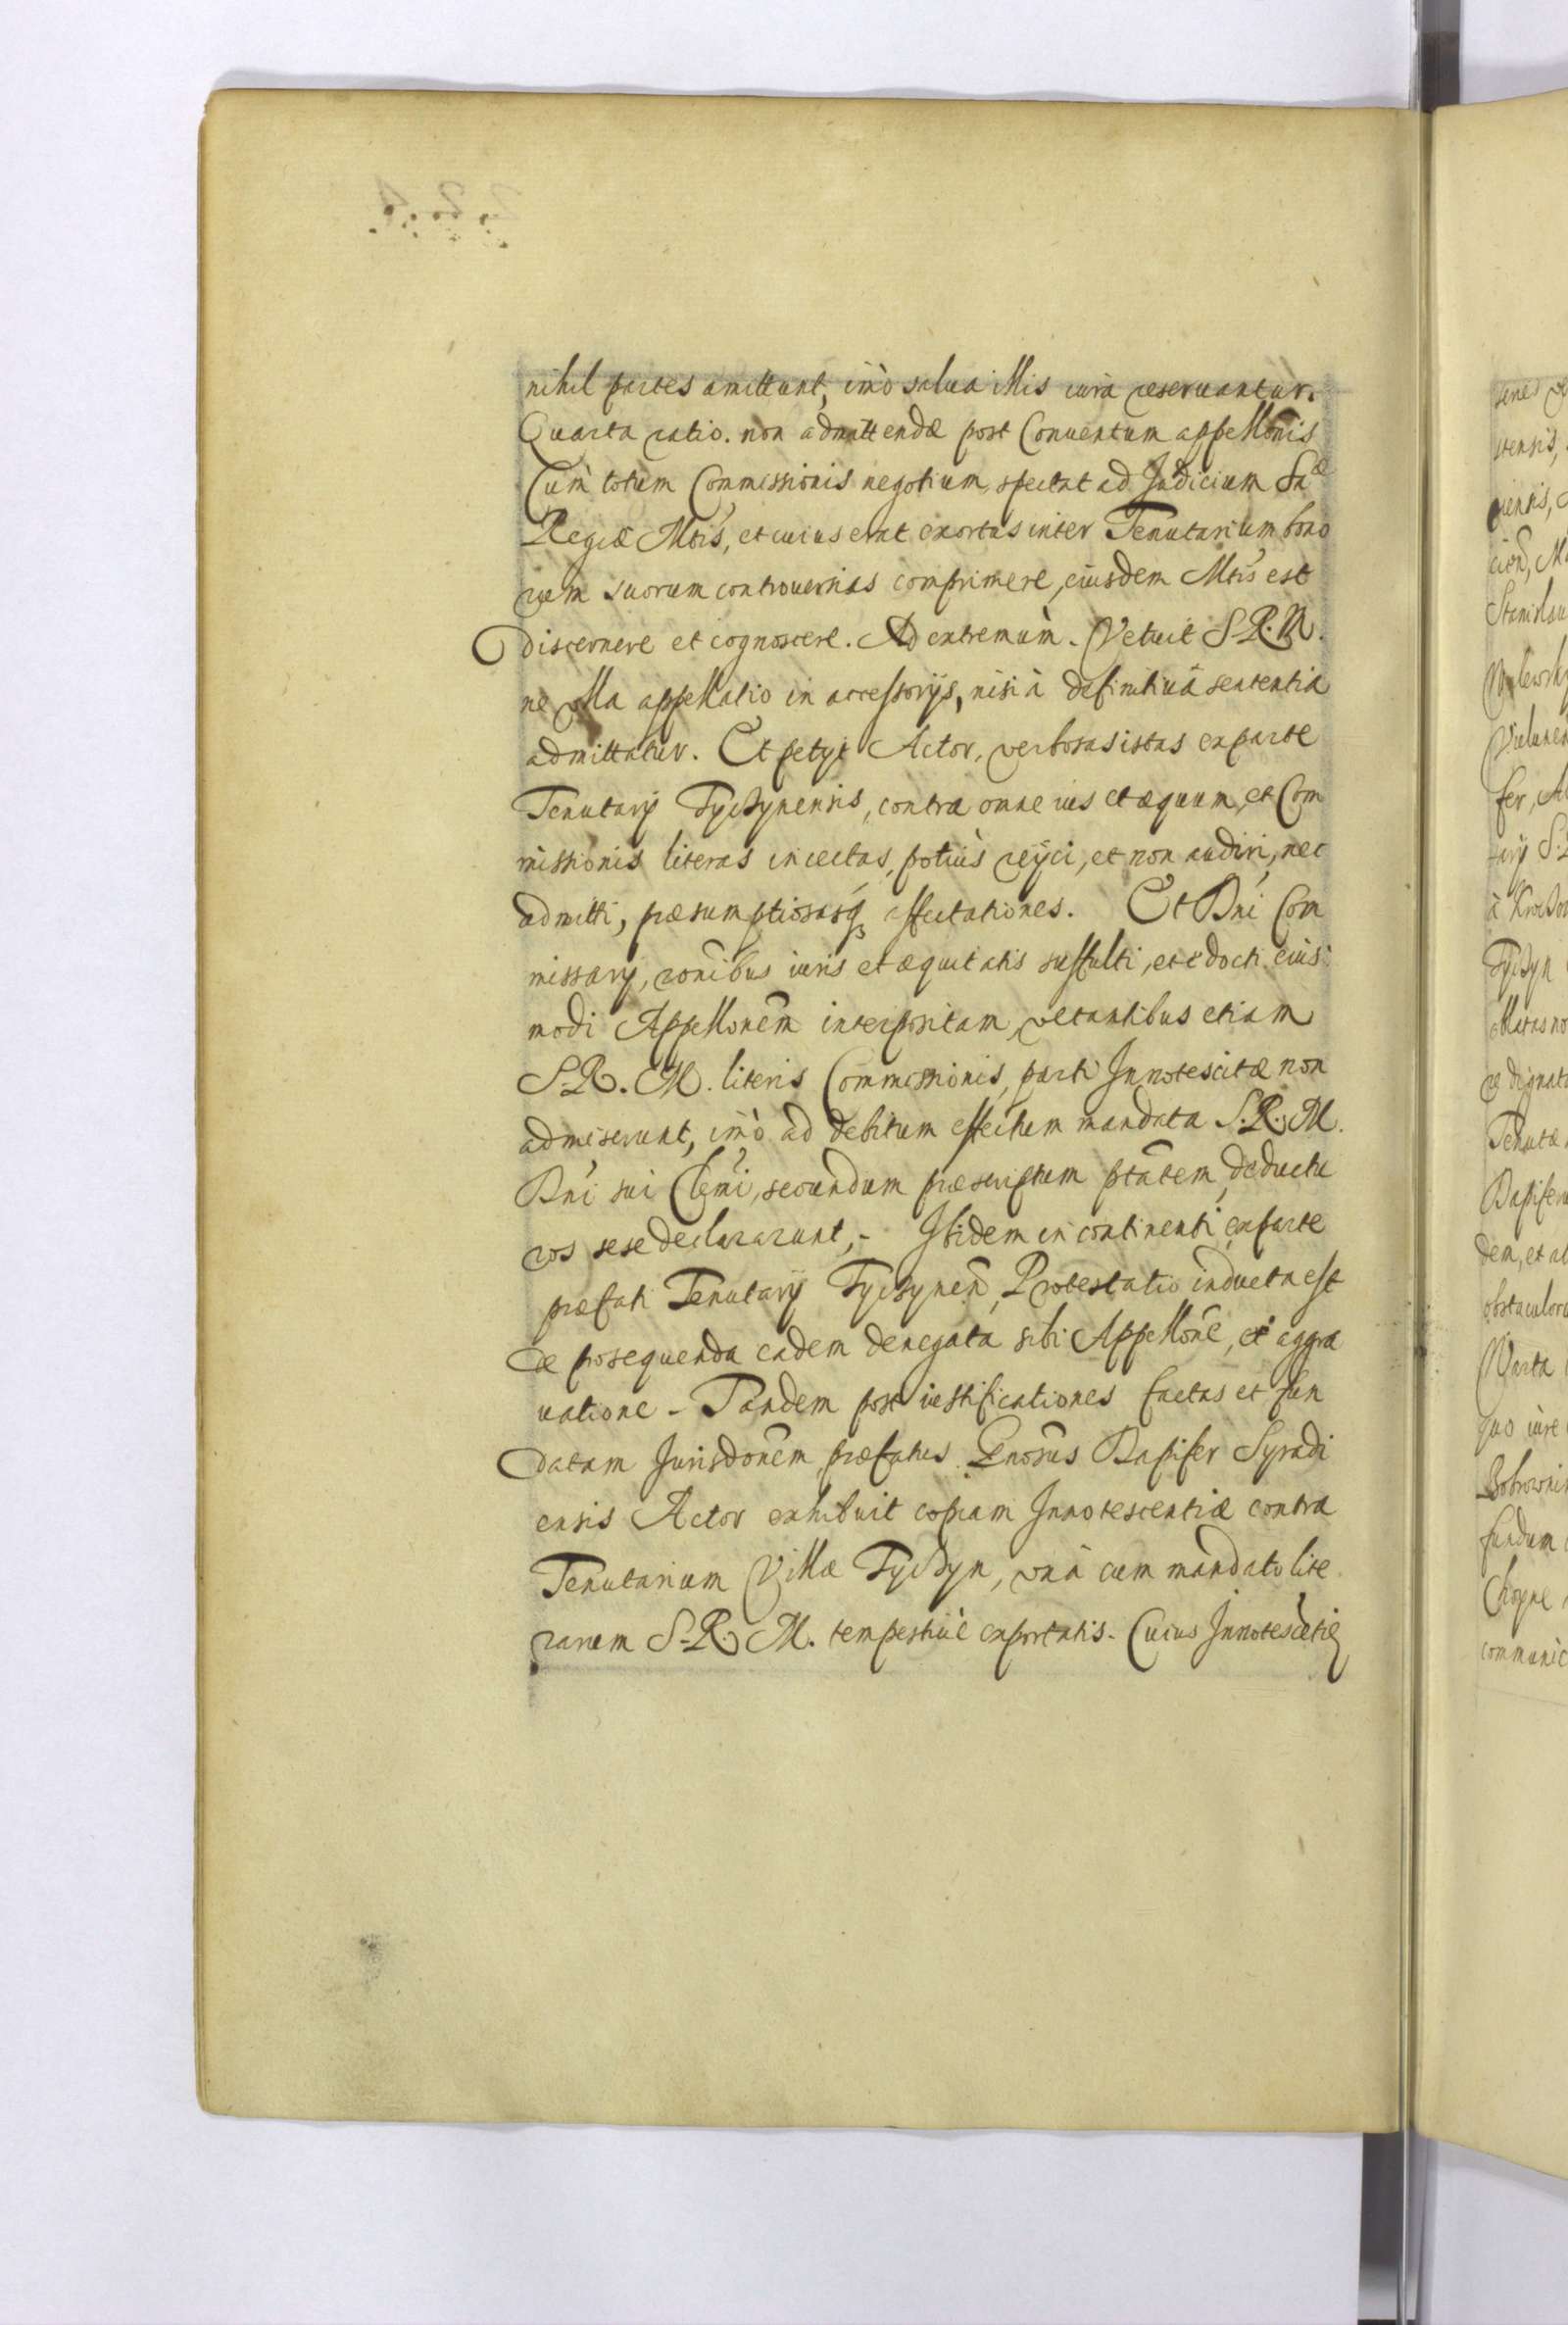 nihil partes amittunt, imò salua illis iura reseruantur.
Quarta ratio. non admittendæ post Conuentum appellonis
Cum totum Commissionis negotium, spectat ad Judicium Sae
Regiæ Mtis, et cuius erat exortas inter Tenutarium bono
rum suorum controuersias comprimere, eiusdem Mtis est
discernere et cognoscere. Ad extremum. Vetuit S. R. M.
ne vlla appellatio in accessorijs, nisi à definitiuâ sententiâ
admittatur. Et petyt Actor, verbosas istas exparte
Tenutarij Tyczynensis, contra omne ius et æquum, et Com
missionis literas inuectas, potiùs reijci, et non audiri, nec
admitti, præsumptiosasq affectationes. Et Dni Com
missarij, ronibus iuris et æquitatis suffulti, et edocti eius
modi Appellonem interpositam, vetantibus etiam
S. R. M. literis Commissionis, parti Innotescitæ non
admiserunt, imò ad debitum effectum mandata S. R. M.
Dni sui Clemi, secundum præscriptum ptatem, deductu
ros sese declararunt,- Ibidem in continenti exparte
præfati Tenutarij Tyczynen, Protestatio inducta est
de prosequenda eadem denegata sibi Appellone, et aggra
uatione - Tandem post iustificationes factas et fun
datam Jurisdonem præfatus Gnosus Dapifer Syradi
ensis Actor exhibuit copiam Innotescentiæ contra
Tenutarium Villæ Tyczyn, vnà cum mandato lite
rarum S. R. M. tempestiuè exportatis. Cuius Innotescetię